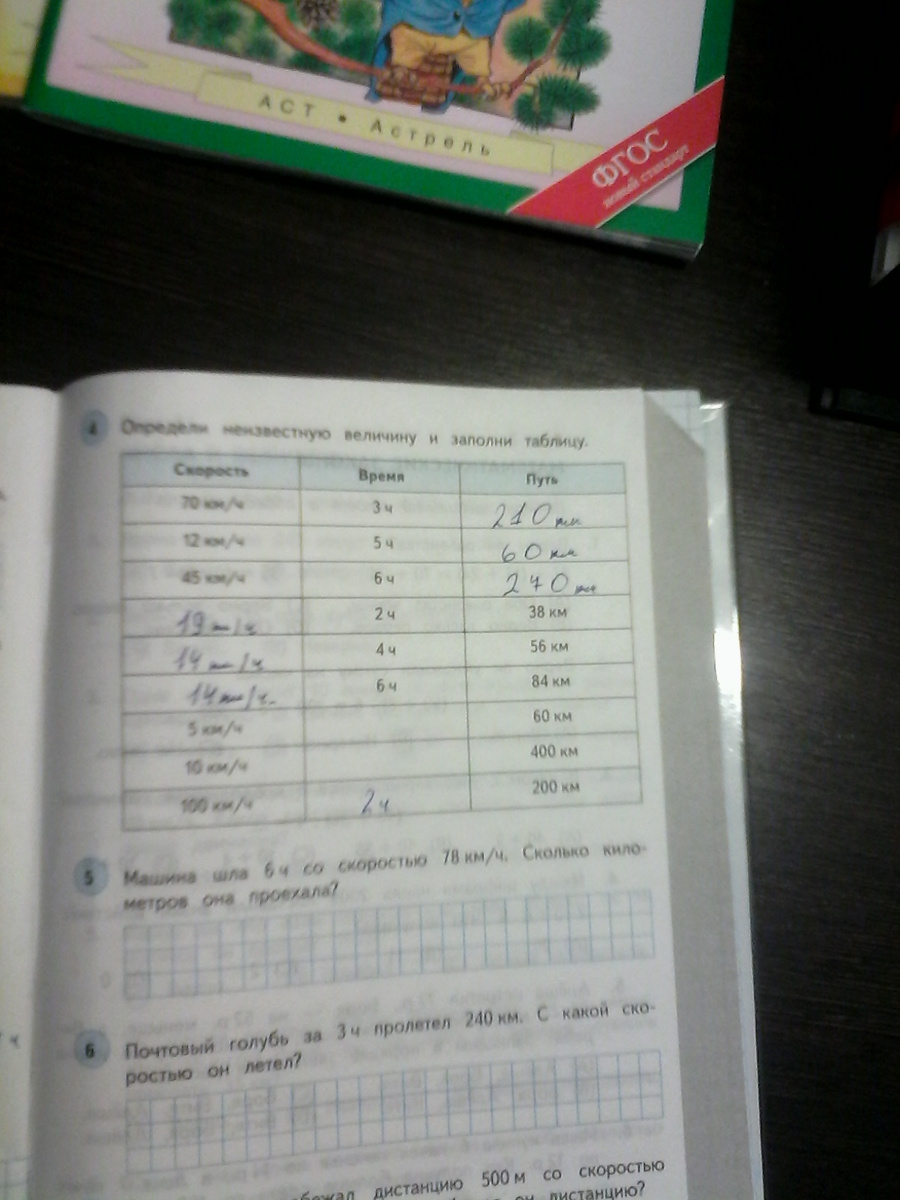 АСТ • Астрель
ФГОС
новый стандарт
4 Определи неизвестную величину и заполни таблицу.
Скорость Время Путь
70 км/ч 3 ч 210 км
12 км/ч 5 ч 60 км
45 км/ч 6 ч 270 км
19 км/ч 2 ч 38 км
14 км/ч 4 ч 56 км
14 км/ч. 6 ч 84 км
5 км/ч 60 км
10 км/ч 400 км
100 км/ч 2 ч 200 км
5 Машина шла 6 ч со скоростью 78 км/ч. Сколько кило-
метров она проехала?
6 Почтовый голубь за 3 ч пролетел 240 км. С какой ско-
ростью он летел?
дистанцию 500 м со скоростью
он дистанцию?